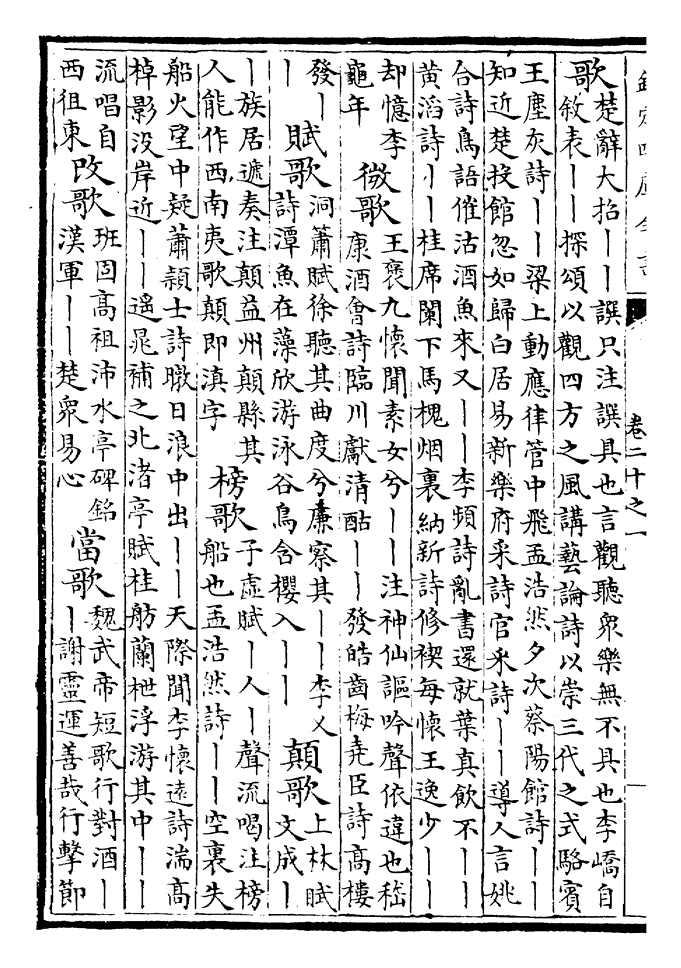 欽定四庫全書
卷二十之一
歌
楚辭大招丨丨譔只注譔具也言觀聽衆樂無不具也李嶠自
敘表丨丨探頌以觀四方之風講藝論詩以崇三代之式駱賓
王塵灰詩丨丨梁上動應律管中飛孟浩然夕次蔡陽館詩丨丨
知近楚投館忽如歸白居易新樂府采詩官采詩丨丨導人言姚
合詩鳥語催沽酒魚來又丨丨李頻詩亂書還就葉真飲不丨丨
黃滔詩丨丨桂席闌下馬槐烟裏納新詩修禊每懷王逸少丨丨
却憶李
龜年
微歌
王褒九懷聞素女兮丨丨注神仙謳吟聲依違也嵇
康酒會詩臨川獻清酤丨丨發皓齒梅堯臣詩高樓
發丨
丨
賦歌
洞簫賦徐聽其曲度兮廉察其丨丨李乂
詩潭魚在藻欣游泳谷鳥含櫻入丨丨
顛歌
上林賦
文成丨
丨族居遞奏注顛益州顛縣其
人能作西南夷歌顛即滇字
榜歌
子虛賦丨人丨聲流喝注榜
船也孟浩然詩丨丨空裏失
船火望中疑蕭穎士詩暾日浪中出丨丨天際聞李懷遠詩湍高
棹影没岸近丨丨遥晁補之北渚亭賦桂舫蘭枻浮游其中丨丨
流唱自
西徂東
改歌
班固高祖沛水亭碑銘
漢軍丨丨楚衆易心
當歌
魏武帝短歌行對酒丨
丨謝靈運善哉行擊節